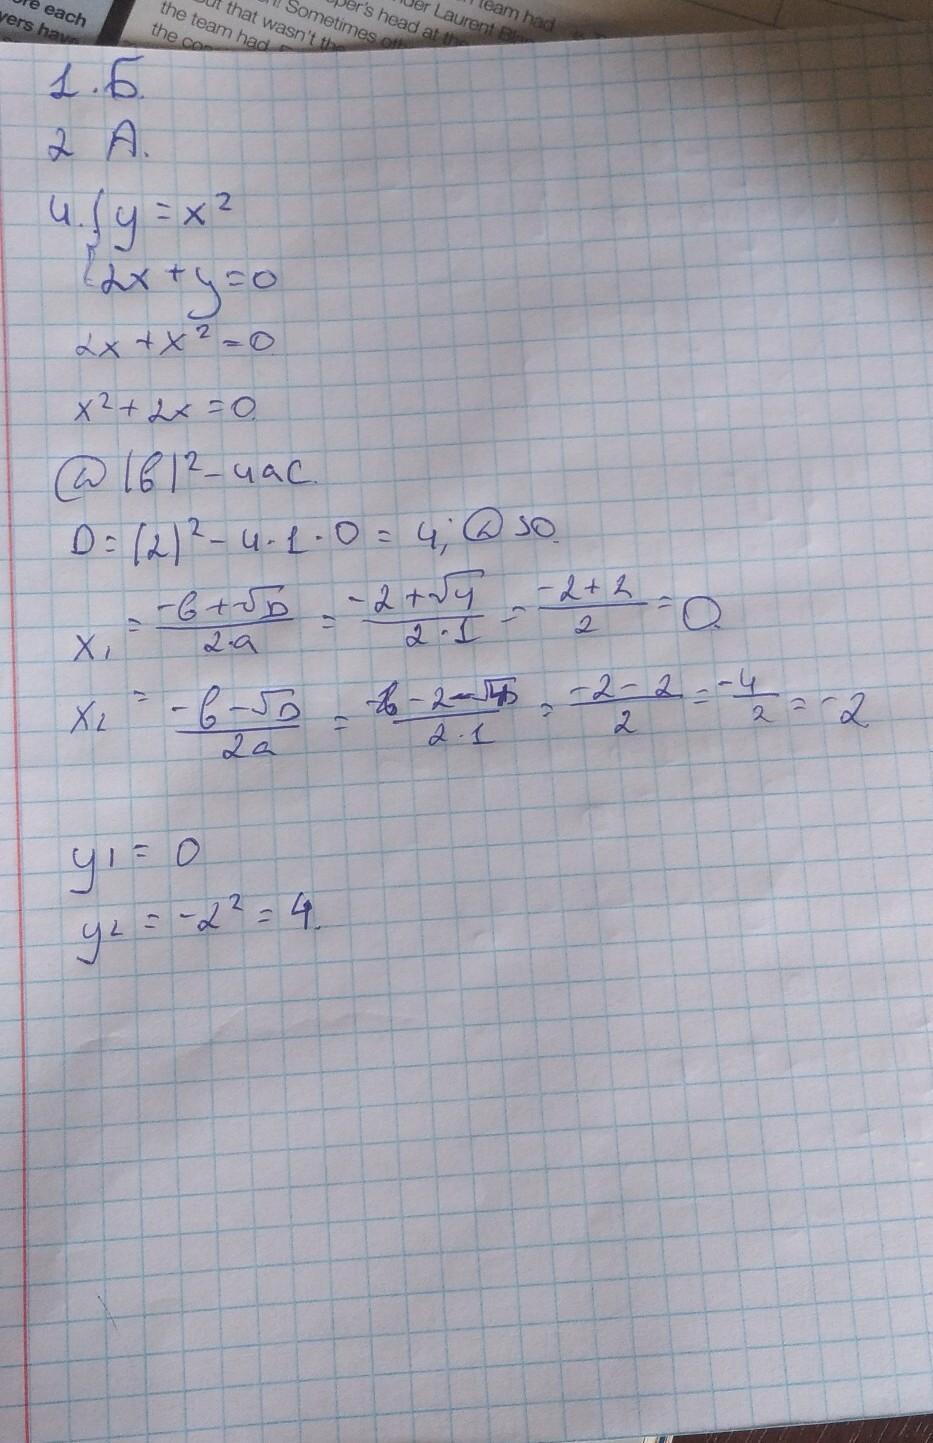 ore each
yers have
the team had
But that wasn't the
the con
! Sometimes
per's head at the
der Laurent Bla
team had
1. Б.
2 А.
4. { y = x²
{ 2x + y = 0
2x + x² = 0
x² + 2x = 0.
D (b)² - 4ac.
D = (2)² - 4 · 1 · 0 = 4; D >0.
x₁ = -b + √D / 2·a = -2 + √4 / 2 · 1 = -2 + 2 / 2 = 0.
x₂ = -b - √D / 2a = -2 - √4 / 2·1 = -2 - 2 / 2 = -4 / 2 = -2
y₁ = 0
y₂ = -2² = 4.